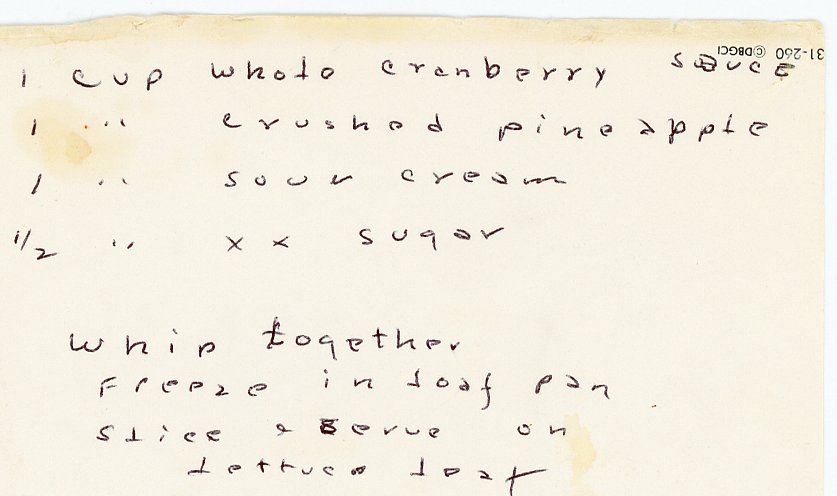 31-260 ©DBGCI
1 cup whole cranberry sauce
1 " crushed pineapple
1 " sour cream
1/2 " xx sugar
Whip together
Freeze in loaf pan
Slice & serve on
lettuce leaf